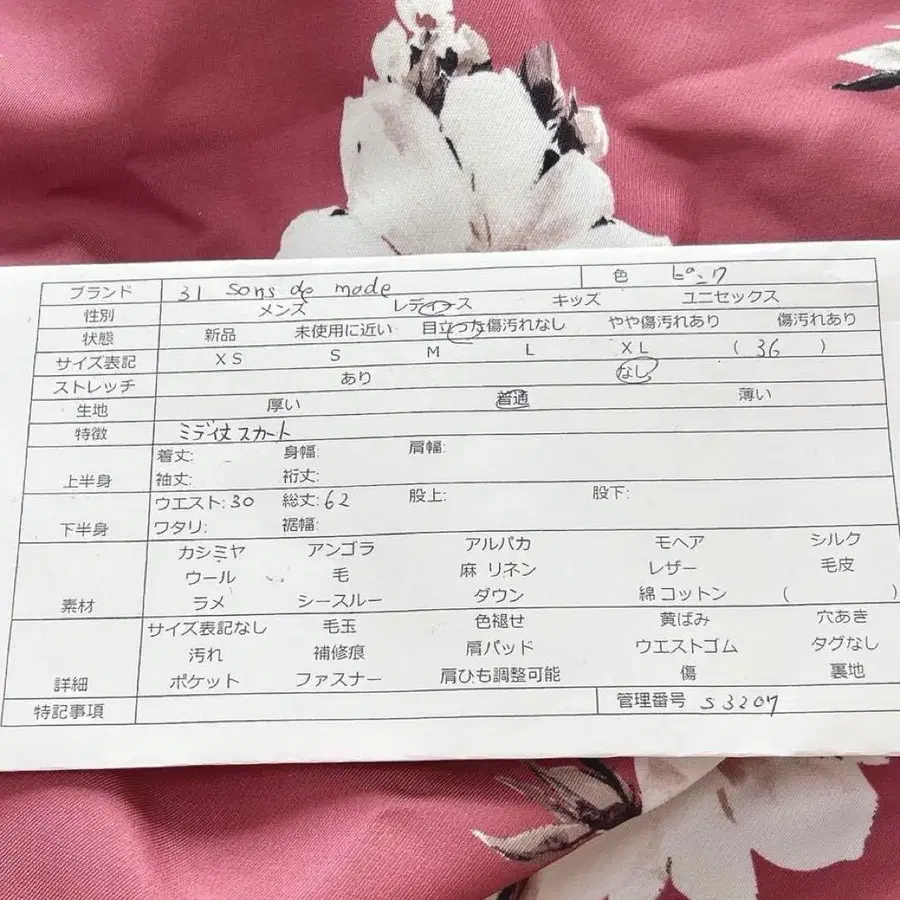 ブランド 31 Sons de mode 色 ピンク
性別 メンズ レディース キッズ ユニセックス
状態 新品 未使用に近い 目立った傷汚れなし やや傷汚れあり 傷汚れあり
サイズ表記 XS S M L XL (36)
ストレッチ あり なし
生地 厚い 普通 薄い
特徴 ミディ丈スカート
上半身 着丈: 身幅: 肩幅:
袖丈: 裄丈:
下半身 ウエスト:30 総丈:62 股上: 股下:
ワタリ: 裾幅:
素材 カシミヤ アンゴラ アルパカ モヘア シルク
ウール 毛 麻 リネン レザー 毛皮
ラメ シースルー ダウン 綿 コットン ( )
詳細 サイズ表記なし 毛玉 色褪せ 黄ばみ 穴あき
汚れ 補修痕 肩パッド ウエストゴム タグなし
ポケット ファスナー 肩ひも調整可能 傷 裏地
特記事項 管理番号 S3207